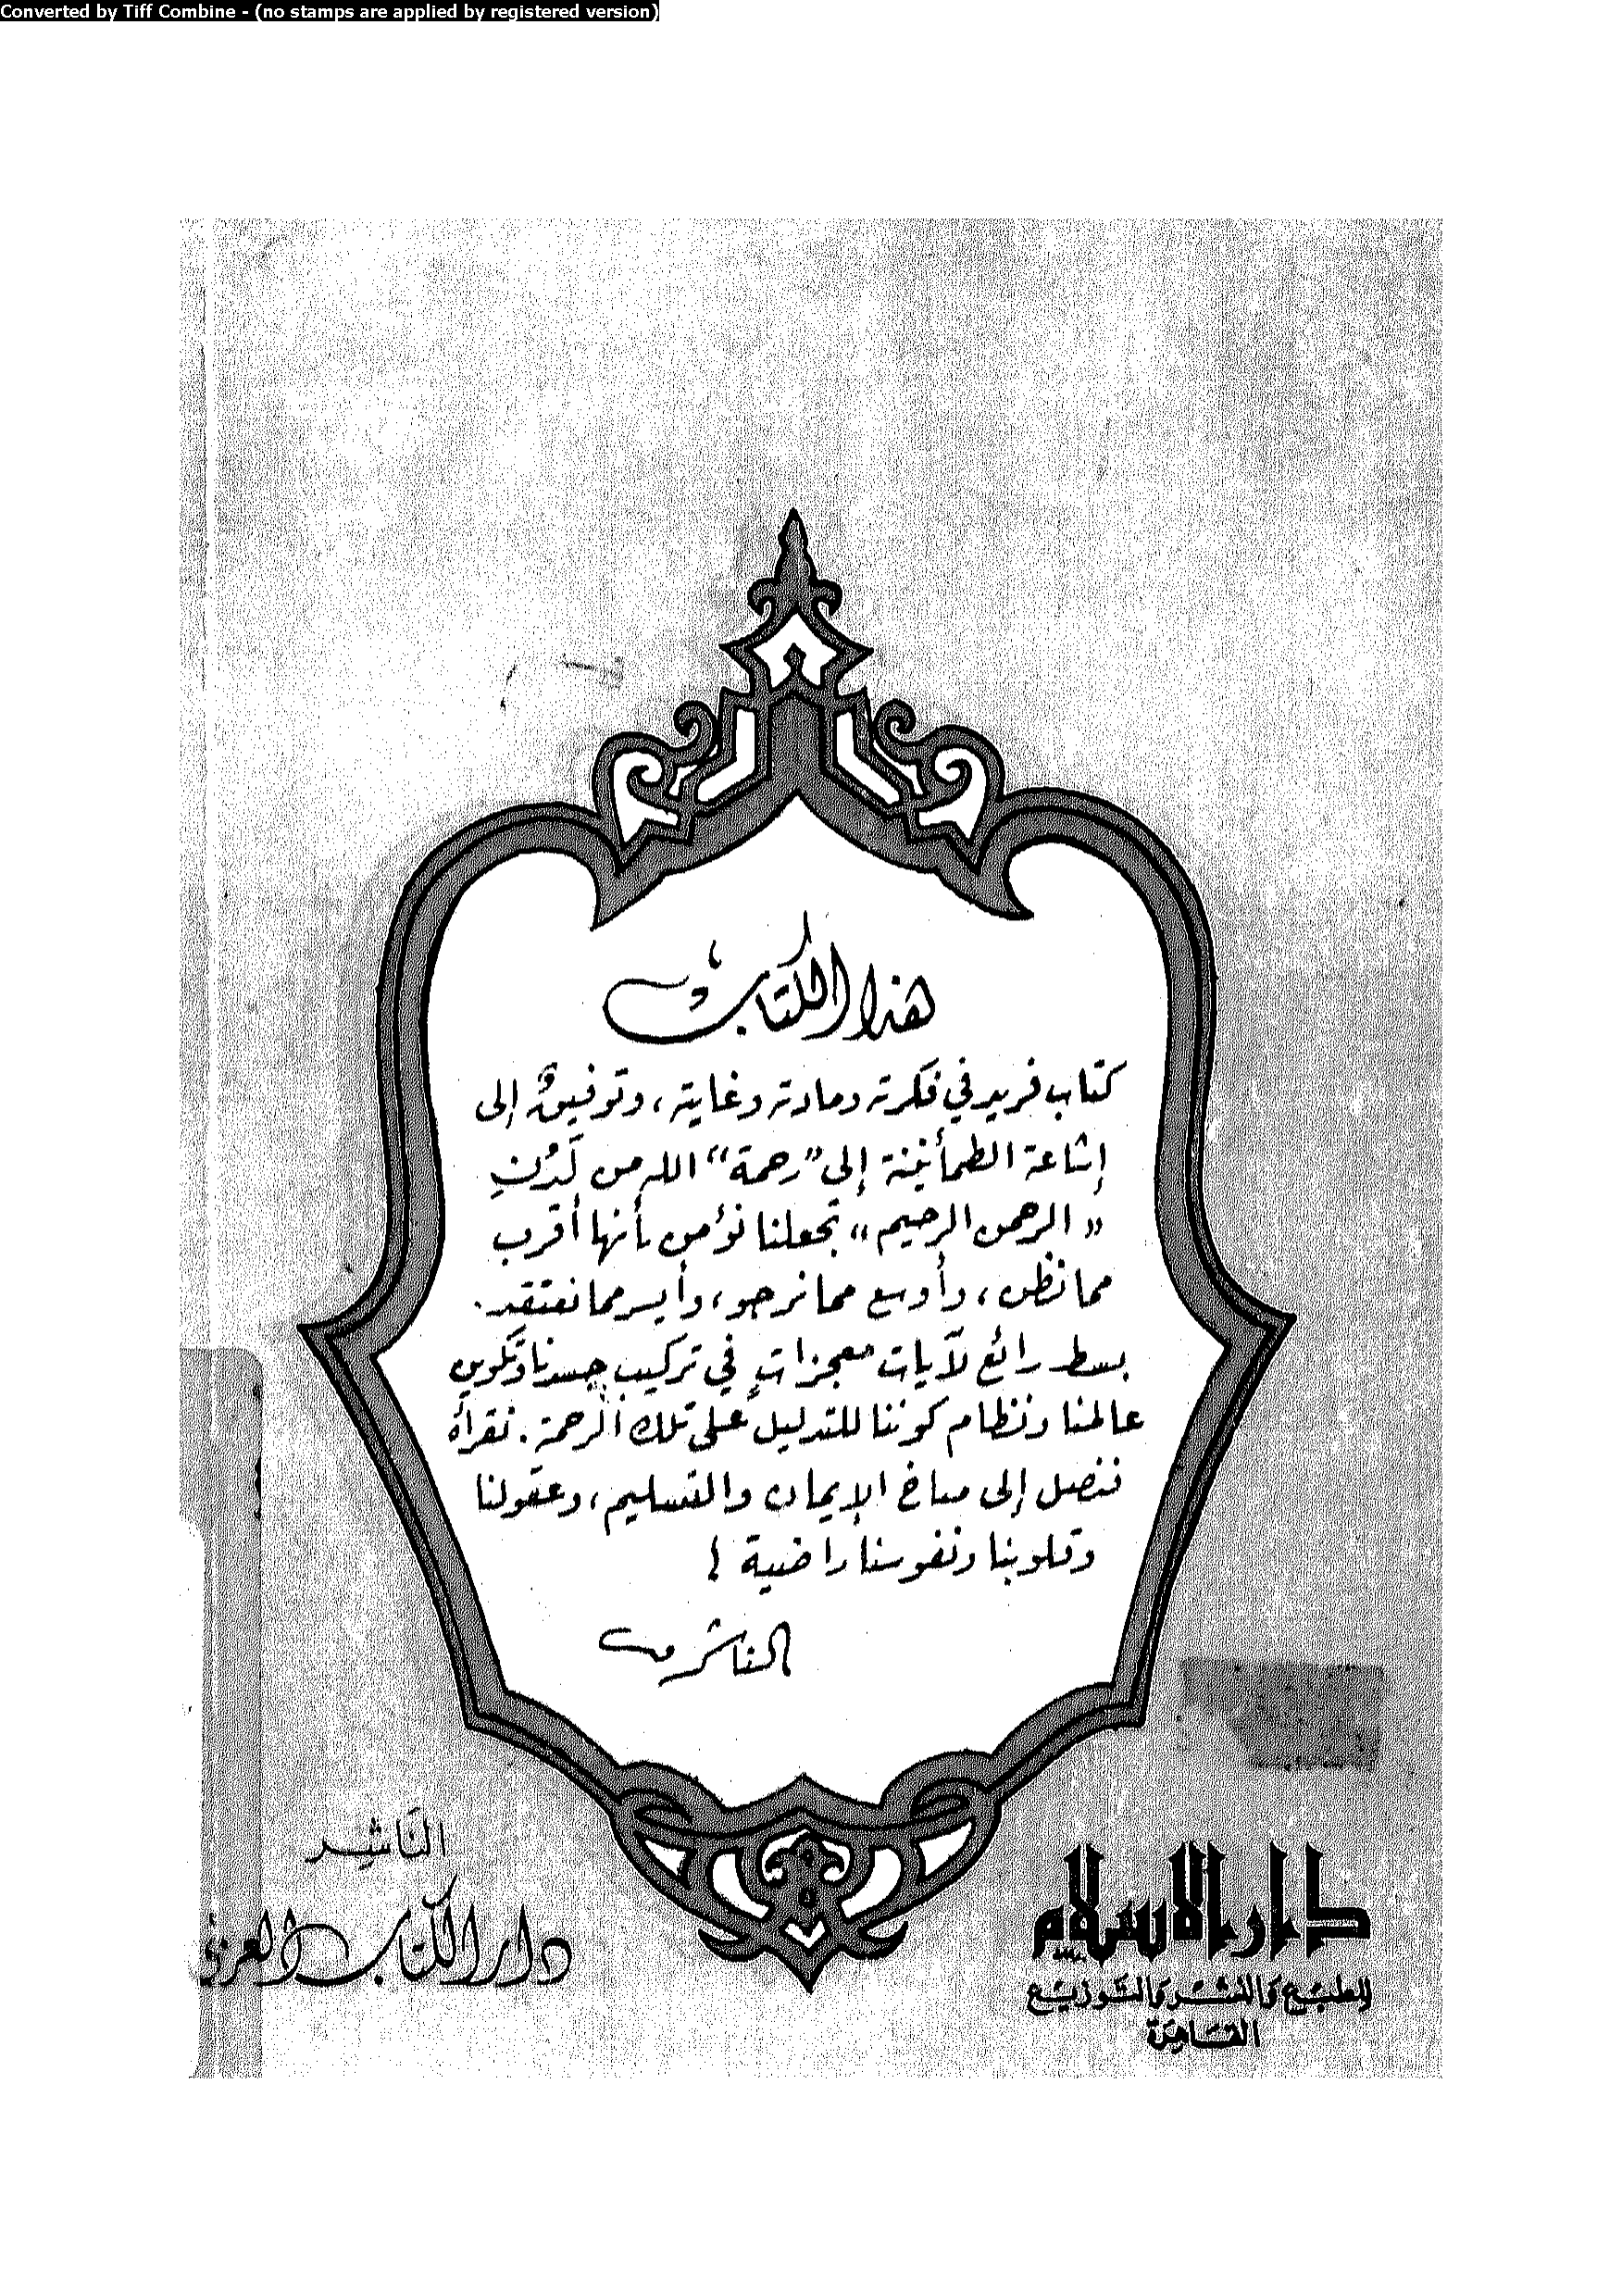 Converted by Tiff Combine - (no stamps are applied by registered version)
هذا الكتاب
كتاب فريد في فكرته ومادته وغايته، وتوفيقٌ إلى
إشاعة الطمأنينة إلى "رحمة" الله من لَدُنِ
"الرحمن الرحيم" تجعلنا نؤمن بأنها أقرب
مما نظن، وأوسع مما نرجو، وأيسر مما نعتقد.
بسط رائع لآيات معجزاتٍ في تركيب جسدنا وتكوين
عالمنا ونظام كوننا للتدليل على تلك الرحمة. نقرأه
فنصل إلى مناخ الإيمان والتسليم، وعقولنا
وقلوبنا ونفوسنا راضية !
الناشر
الناشر
دار الكتاب العربي
دار الإسلام
للطبع والنشر والتوزيع
القاهرة